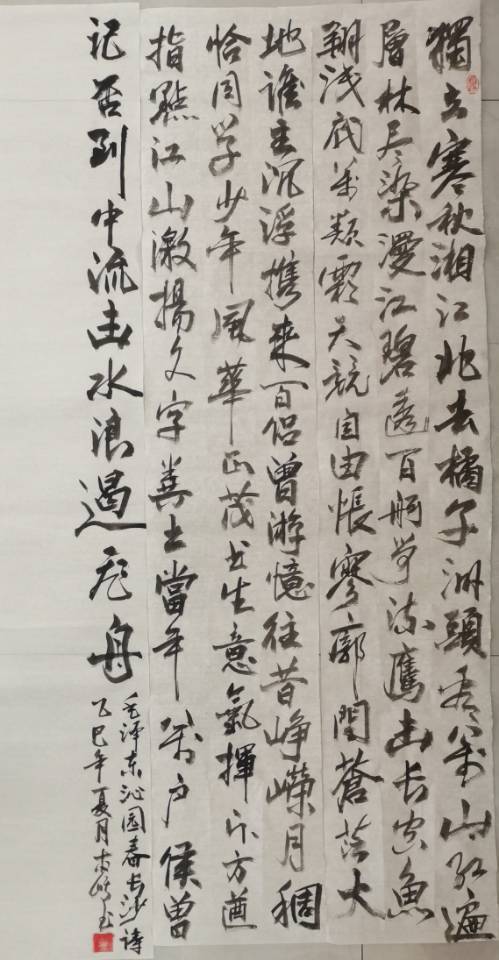 獨立寒秋湘江北去橘子洲頭看萬山红遍
層林尽染漫江碧透百舸争流鷹击长空魚
翔浅底萬類霜天競自由悵寥廓問蒼茫大
地誰主沉浮携来百侣曾游憶往昔峥嵘月稠
恰同学少年風華正茂书生意氣揮斥方遒
指點江山激揚文字粪土當年萬户侯曾
记否到中流击水浪遏飞舟
毛泽东沁园春长沙诗
乙巳年夏月